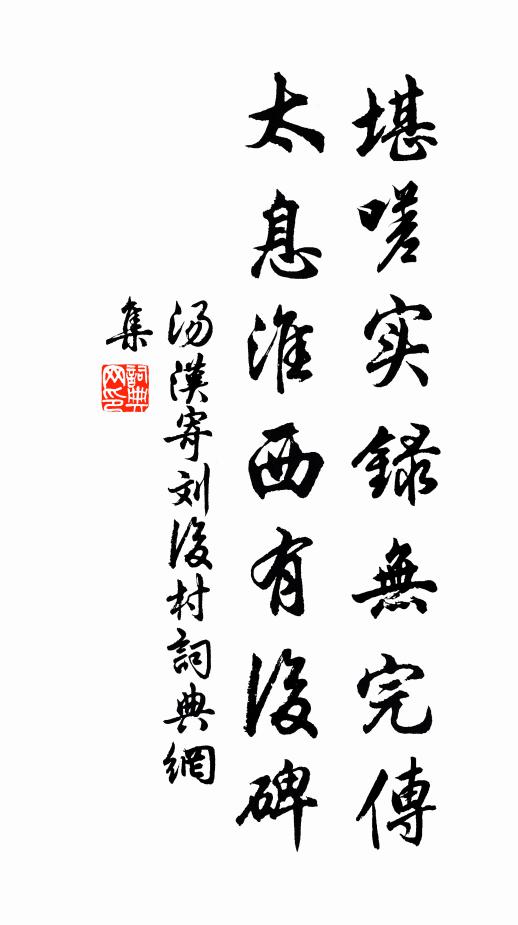 堪嗟实録無完傳
太息淮西有後碑
汤漢寄刘後村詞典網
集
詞典网印